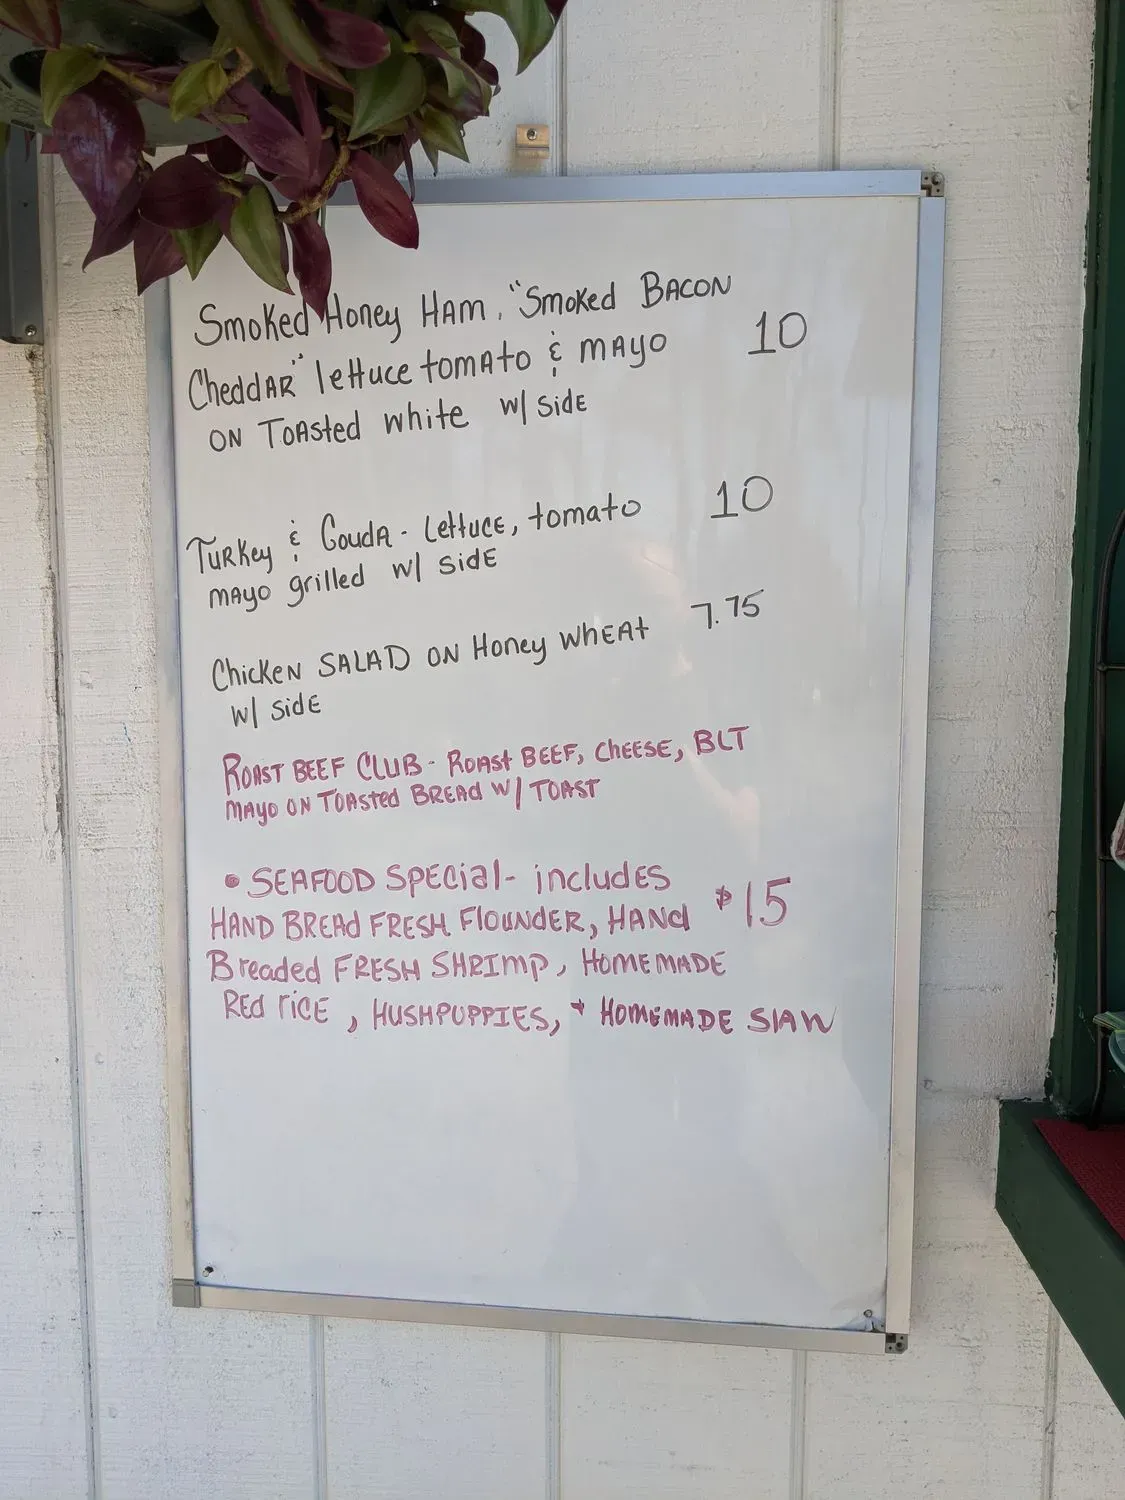 Smoked Honey HAm, "Smoked BACON
CheddAR" lettuce tomAto & mAyo 10
ON ToAsted white w/ SidE
TuRKey & GoudA - LettucE, tomato 10
mAyo grilled w/ SidE
ChickeN SALAD ON Honey WhEAt 7.75
w/ SidE
ROAST BEEF CLUB - ROAst BEEF, CHEESE, BLT
MAyo ON TOAsted BREAd W/ TOAST
• SEAFOOD SPECial - includES
HAND BREAd FRESH FlOUNDER, HANd $15
Breaded FRESH SHRImp, HOMEMADE
REd ricE, HUSHPUPPIES, + HOMEMADE SlAW